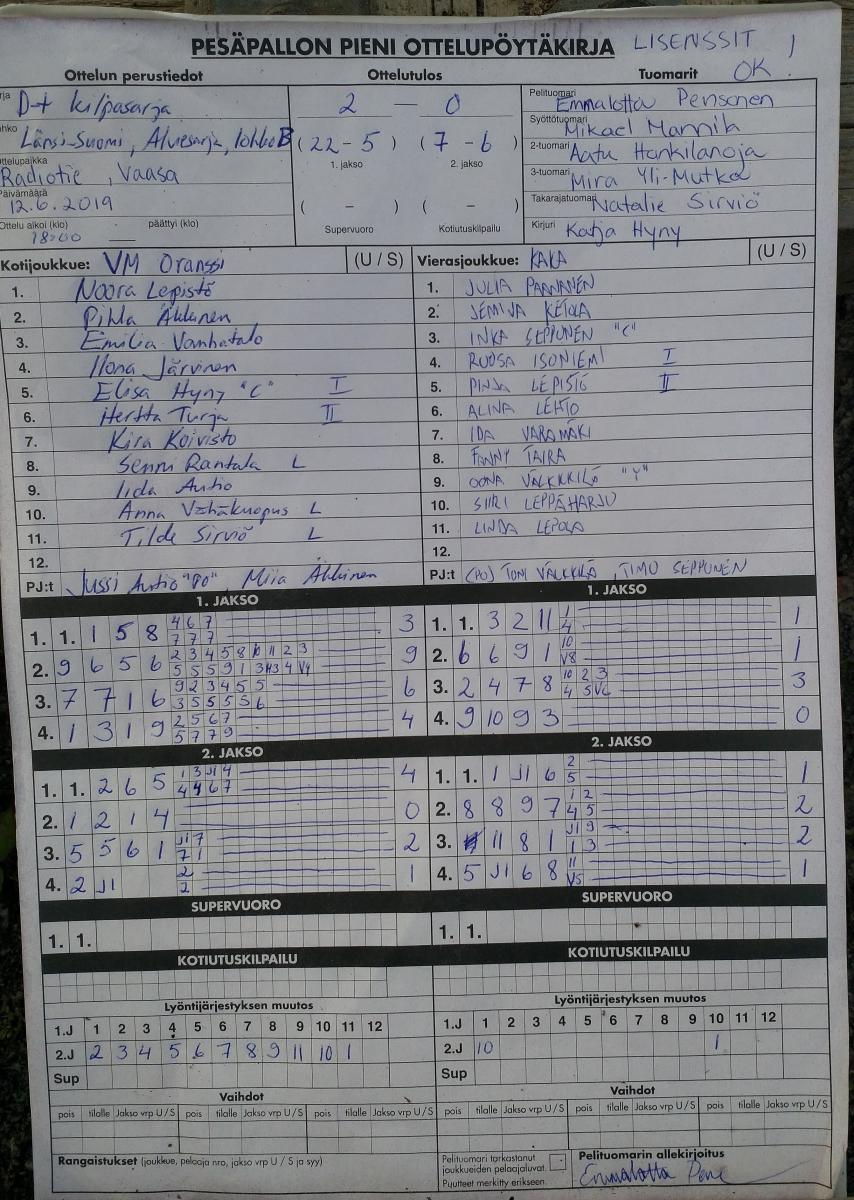 PESÄPALLON PIENI OTTELUPÖYTÄKIRJA LISENSSIT OK!
Ottelun perustiedot Ottelutulos Tuomarit
D-t kilpasarja
Länsi-Suomi, Aluesarja, lohko B
Radiotie, Vaasa
Päivämäärä
12.6.2019
Ottelu alkoi (klo) päättyi (klo)
18:00
2 – 0
(22 - 5) (7 - 6)
1. jakso 2. jakso
( – ) ( – )
Supervuoro Kotiutuskilpailu
Pelituomari Emmalotta Pensonen
Syöttötuomari Mikael Mannila
2-tuomari Aatu Hankilanoja
3-tuomari Mira Yli-Mutka
Takarajatuomari Natalie Sirviö
Kirjuri Katja Hyny
Kotijoukkue: VM Oranssi (U / S)
1. Noora Lepistö
2. Pihla Äkkinen
3. Emilia Vanhatalo
4. Ilona Järvinen
5. Elisa Hyny "C" I
6. Hertta Turja II
7. Kira Koivisto
8. Senni Rantala L
9. Iida Autio
10. Anna Vähäkuopus L
11. Tilde Sirviö L
12.
PJ:t Jussi Autio "PO", Miia Äkkinen
Vierasjoukkue: KAKA (U / S)
1. JULIA PAANANEN
2. JEMINA KETOLA
3. INKA SEPPONEN "C"
4. ROOSA ISONIEMI I
5. PINJA LEPISTÖ II
6. ALINA LEHTO
7. IDA VARAMÄKI
8. FANNY TAIRA
9. OONA VÄLKKILÄ "Y"
10. SIIRI LEPPÄHARJU
11. LINDA LEPOLA
12.
PJ:t (PO) TONI VÄLKKILÄ, TIMO SEPPONEN
1. JAKSO
1. 1. 1 5 8 3
4 6 7
7 7 7
2. 9 6 5 6 9
2 3 4 5 8 10 11 2 3
3. 7 7 1 6 6
9 2 3 4 5 5
3 5 5 5 5 6
4. 1 3 1 9 4
2 5 6 7
5 7 7 9
1. JAKSO
1. 1. 3 2 11 1
1
4
2. 6 6 9 1 1
10
V8
3. 2 4 7 8 3
10 2 3
4 5 V6
4. 9 10 9 3 0
2. JAKSO
1. 1. 2 6 5 4
1 3 J1 4
4 4 6 7
2. 1 2 1 4 0
3. 5 5 6 1 2
J1 7
7 1
4. 2 J1 1
2
2
2. JAKSO
1. 1. 1 J1 6 1
2
5
2. 8 8 9 7 2
1 2
4 5
3. 11 8 1 2
J1 9
1 3
4. 5 J1 6 8 1
11
V5
SUPERVUORO
1. 1.
SUPERVUORO
1. 1.
KOTIUTUSKILPAILU
KOTIUTUSKILPAILU
Lyöntijärjestyksen muutos
1.J 1 2 3 4 5 6 7 8 9 10 11 12
2.J 2 3 4 5 6 7 8 9 11 10 1
Sup
Lyöntijärjestyksen muutos
1.J 1 2 3 4 5 6 7 8 9 10 11 12
2.J 10 1
Sup
Vaihdot
pois tilalle Jakso vrp U / S pois tilalle Jakso vrp U / S pois tilalle Jakso vrp U / S
Vaihdot
pois tilalle Jakso vrp U / S pois tilalle Jakso vrp U / S pois tilalle Jakso vrp U / S
Rangaistukset (joukkue, pelaaja nro, jakso vrp U / S ja syy)
Pelituomari tarkastanut
joukkueiden pelaajaluvat.
Puutteet merkitty erikseen.
Pelituomarin allekirjoitus
Emmalotta